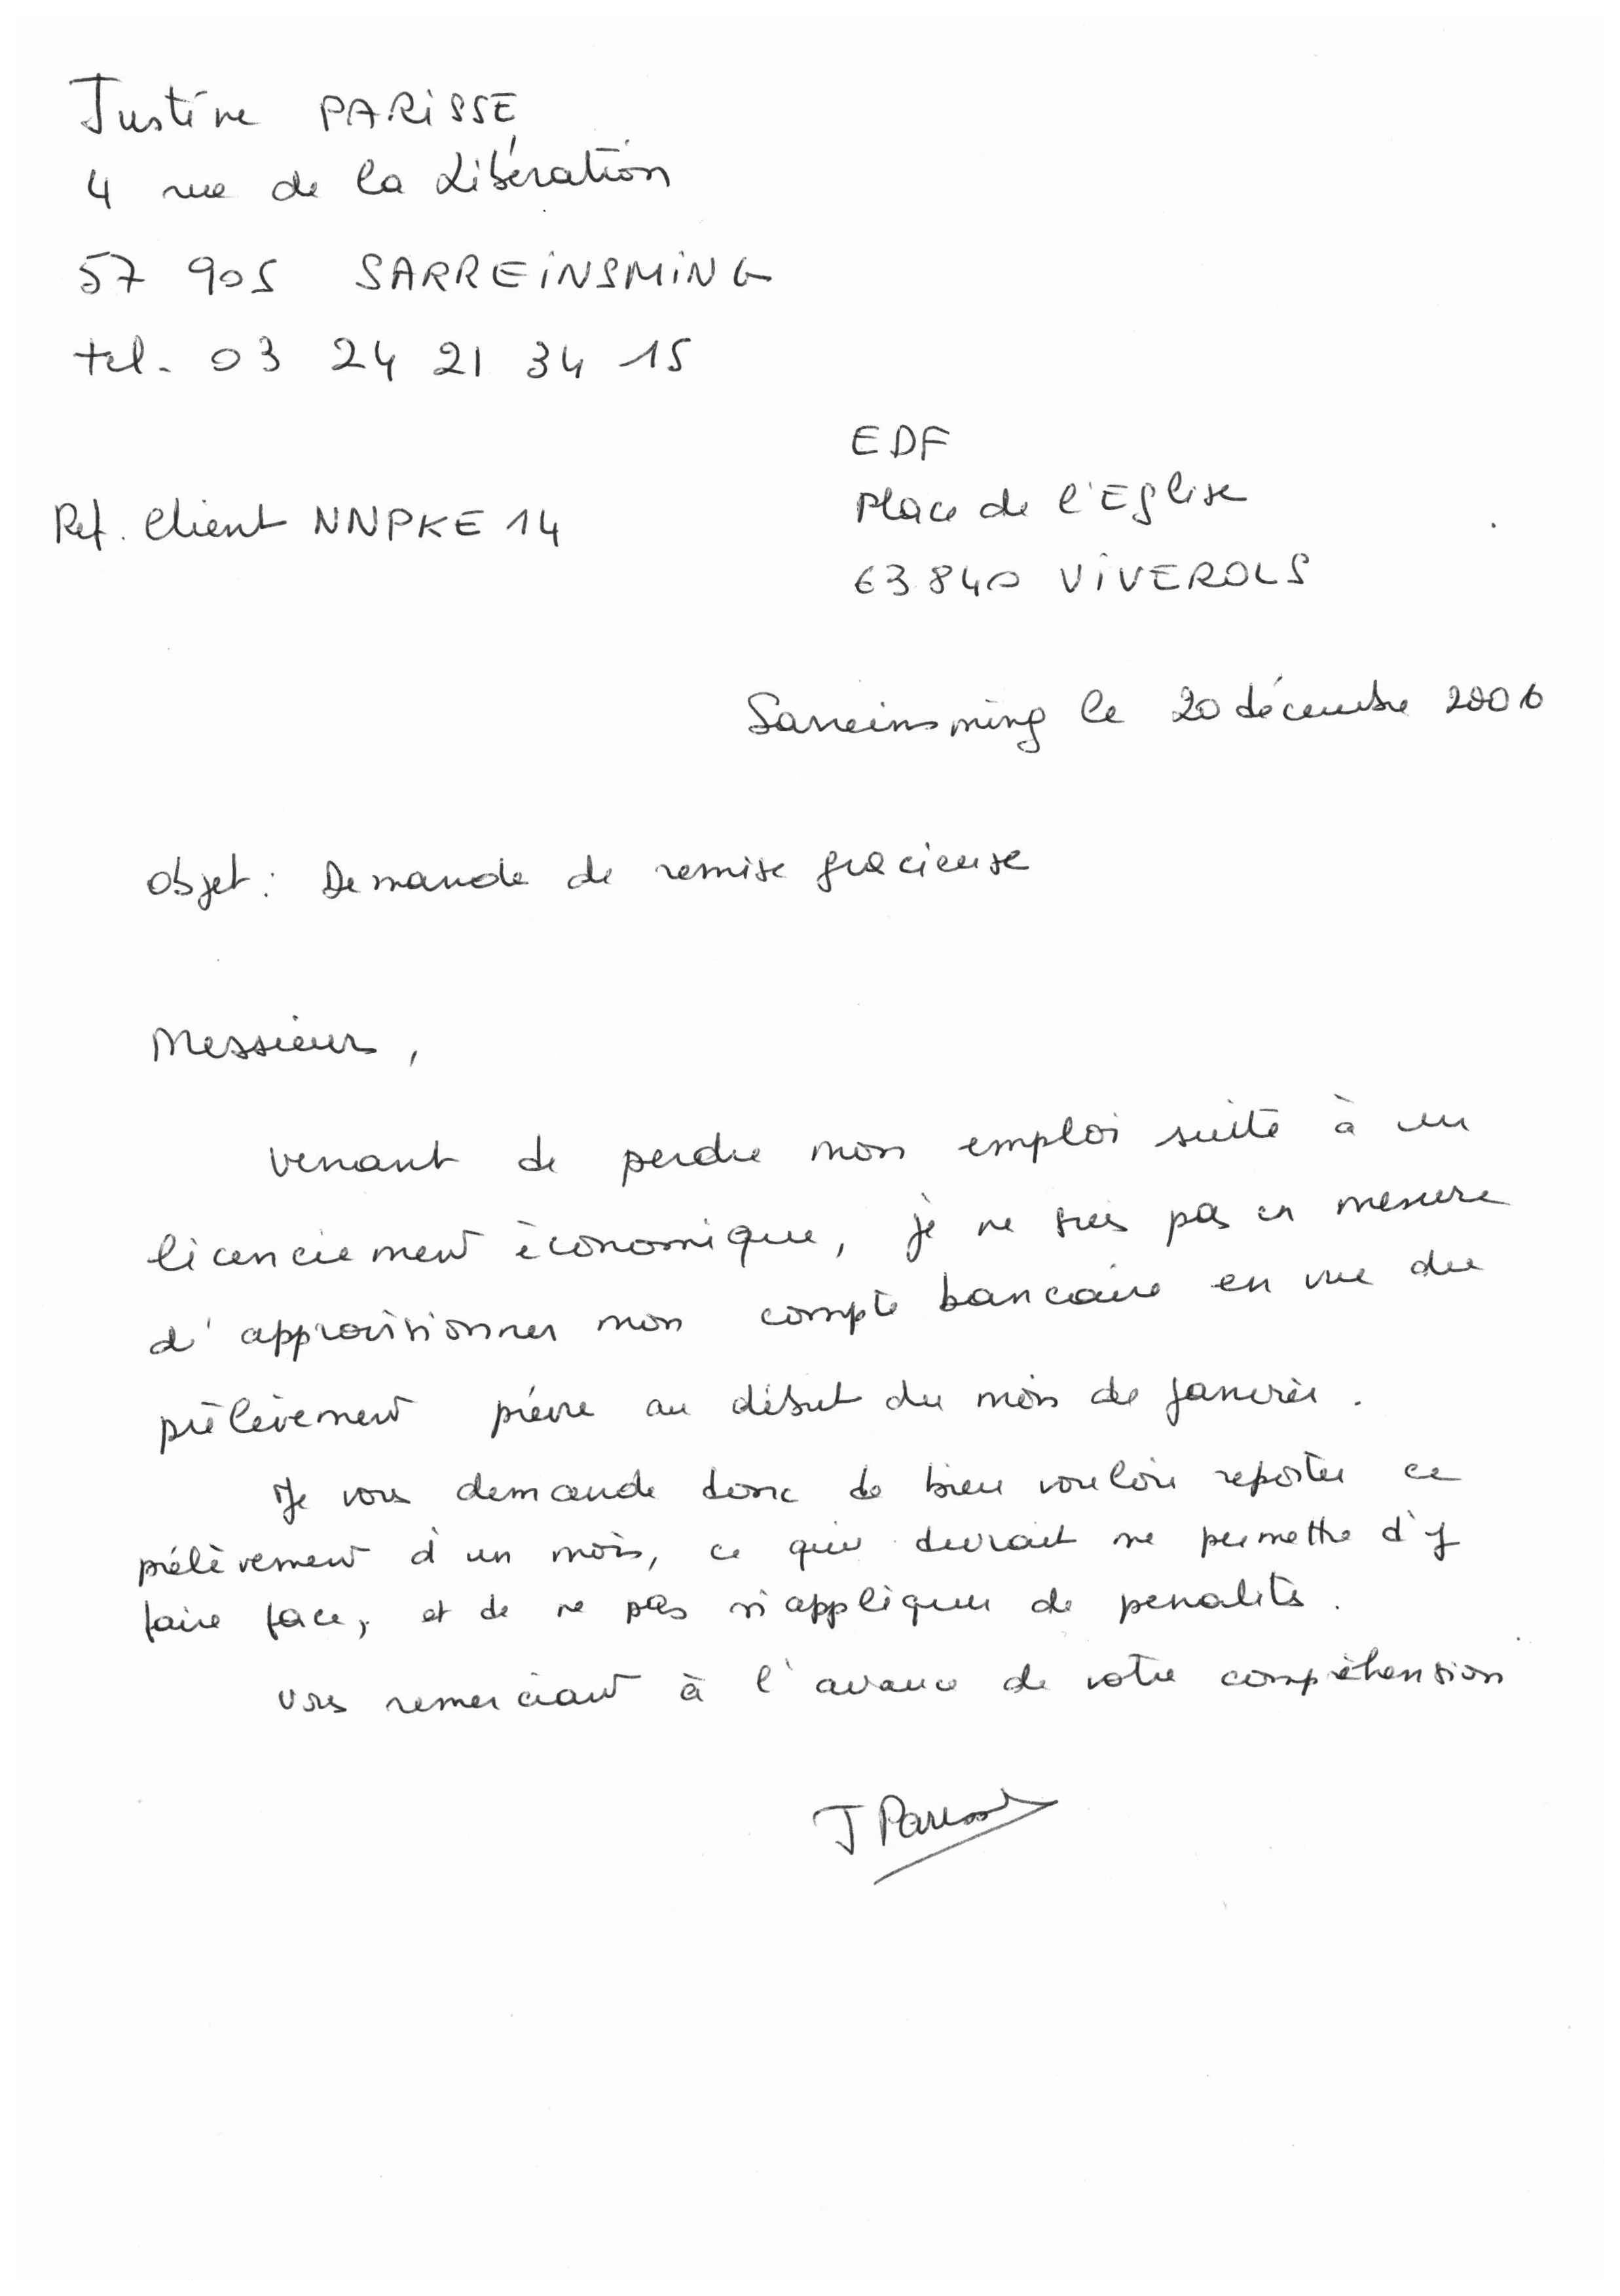 Justine PARISSE
4 rue de la Libération
57 905 SARREINSMING
tel. 03 24 21 34 15
EDF
Ref. Client NNPKE 14
Place de l'Eglise
63840 VIVEROLS
Sarreinsming le 20 décembre 2006
Objet : Demande de remise gracieuse
Messieurs,
venant de perdre mon emploi suite à un
licenciement économique, je ne suis pas en mesure
d'approvisionner mon compte bancaire en vue du
prélèvement prévu au début du mois de janvier.
Je vous demande donc de bien vouloir reporter ce
prélèvement d'un mois, ce qui devrait me permettre d'y
faire face, et de ne pas m'appliquer de penalités.
Vous remerciant à l'avance de votre compréhension
J Parisse